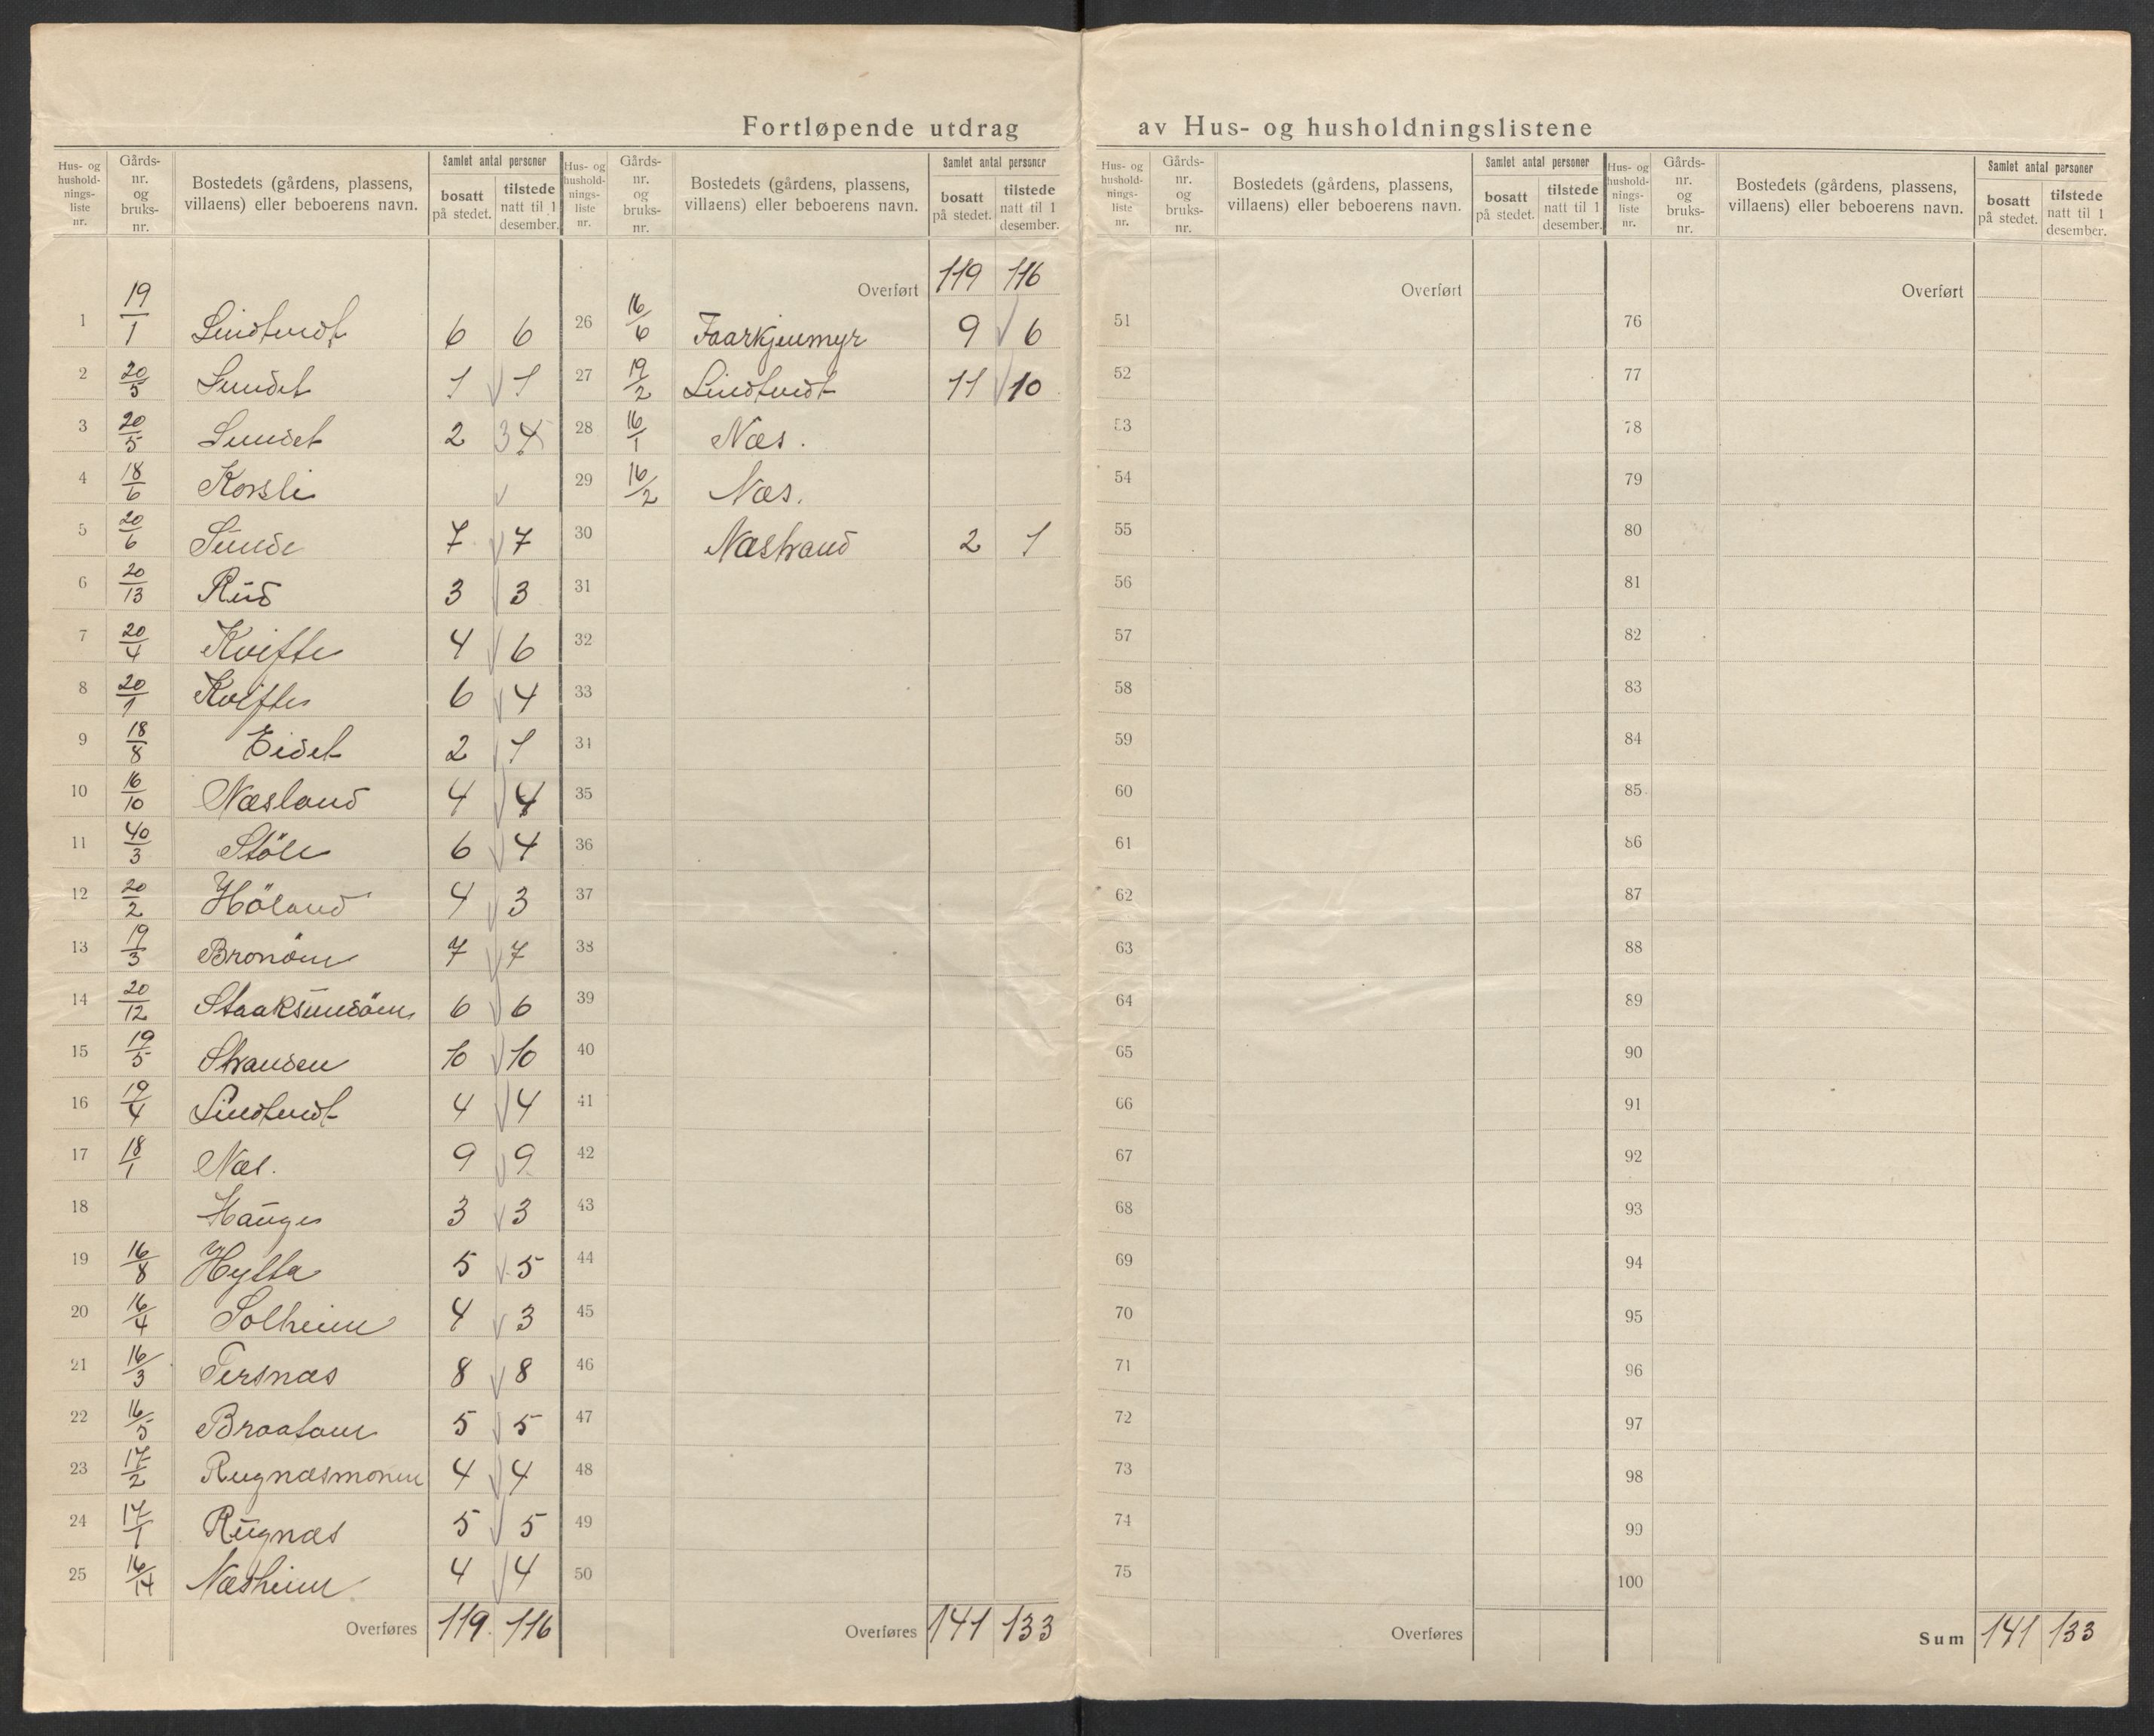 Fortløpende utdrag av Hus- og husholdningslistene
Hus- og hushold- nings- liste nr. Gårds- nr. og bruks- nr. Bostedets (gårdens, plassens, villaens) eller beboerens navn. Samlet antal personer bosatt på stedet. tilstede natt til 1 desember.
1 19/1 Lindtvedt 6 6
2 20/5 Sundet 1 1
3 20/5 Sundet 2 3 4
4 18/6 Korsli
5 20/6 Sunde 7 7
6 20/13 Rud 3 3
7 20/4 Kvifte 4 6
8 20/1 Kvifte 6 4
9 18/8 Eidet 2 1
10 16/10 Næsland 4 4
11 40/3 Støle 6 4
12 20/2 Höland 4 3
13 19/3 Bronöen 7 7
14 20/12 6 6
15 19/5 Stranden 10 10
16 19/4 Lindtvedt 4 4
17 18/1 Næs. 9 9
18 Hauge 3 3
19 16/8 Hylla 5 5
20 16/4 Solheim 4 3
21 16/3 Tersnæs 8 8
22 16/5 Braatane 5 5
23 17/2 Rugnæsmonen 4 4
24 17/1 Rugnæs 5 5
25 16/14 Næsheim 4 4
Overføres 119 116
Hus- og hushold- nings- liste nr. Gårds- nr. og bruks- nr. Bostedets (gårdens, plassens, villaens) eller beboerens navn. Samlet antal personer bosatt på stedet. tilstede natt til 1 desember.
Overført 119 116
26 16/6 Faarkjenmyr 9 6
27 19/2 Lindtvedt 11 10
28 16/1 Næs.
29 16/2 Næs.
30 Næstrand 2 1
31
32
33
34
35
36
37
38
39
40
41
42
43
44
45
46
47
48
49
50
Overføres 141 133
Hus- og hushold- nings- liste nr. Gårds- nr. og bruks- nr. Bostedets (gårdens, plassens, villaens) eller beboerens navn. Samlet antal personer bosatt på stedet. tilstede natt til 1 desember.
Overført
51
52
53
54
55
56
57
58
59
60
61
62
63
64
65
66
67
68
69
70
71
72
73
74
75
Overføres
Hus- og hushold- nings- liste nr. Gårds- nr. og bruks- nr. Bostedets (gårdens, plassens, villaens) eller beboerens navn. Samlet antal personer bosatt på stedet. tilstede natt til 1 desember.
Overført
76
77
78
79
80
81
82
83
84
85
86
87
88
89
90
91
92
93
94
95
96
97
98
99
100
Sum 141 133